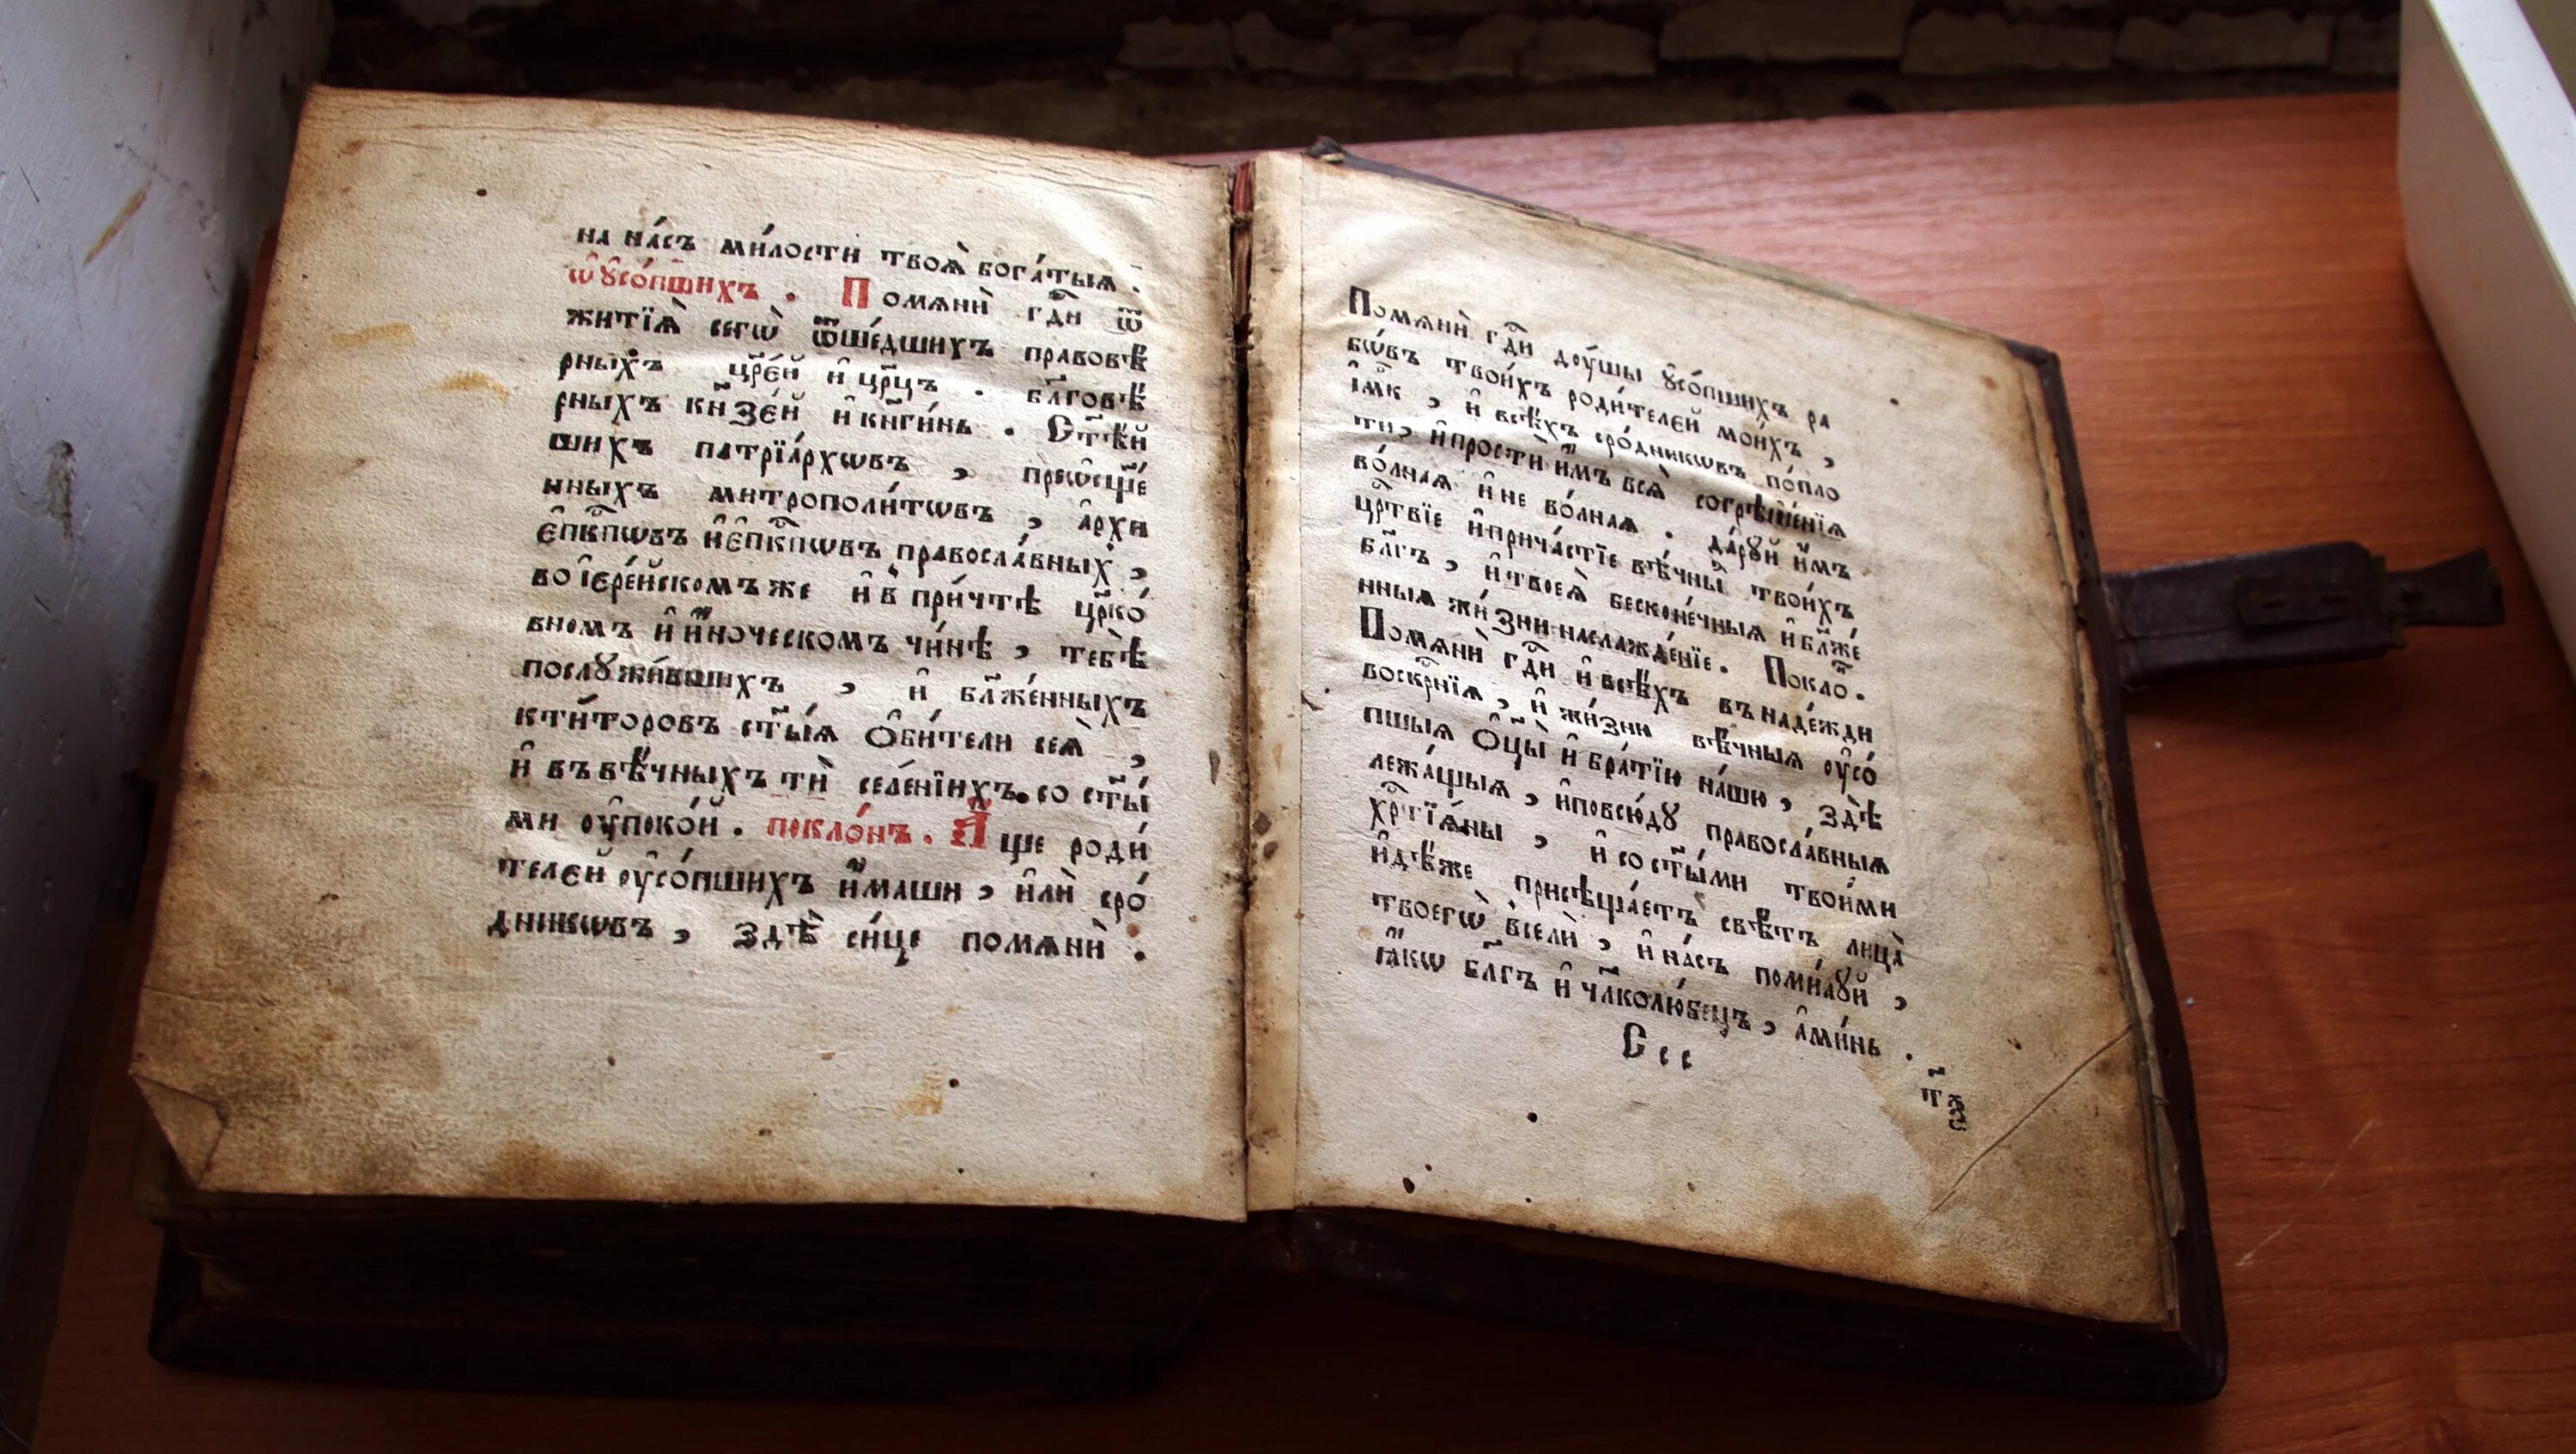 на на́съ ми́лости твоѧ̀ бога́тыѧ .
ѡ҆ ᲂу҆со́пшихъ . Помѧнѝ гдⷭ҇и ѿ
житїѧ̀ сегѡ̀ ѿше́дшихъ правовѣ́
рныхъ цр҃е́й и҆ цр҃цъ . бл҃говѣ́
рныхъ кн҃зе́й и҆ кн҃ги́нь . Ст҃ѣ́й
шихъ патрїа́рхѡвъ , преѡ҆сщ҃е́
нныхъ митрополи́тѡвъ , а҆рхи
є҆пⷭ҇кпѡвъ и҆ є҆пⷭ҇кпѡвъ правосла́вных̾ ,
во і҆ере́йскомъ же и҆ в̾ при́чтѣ цр҃ко́
вномъ и҆ и҆́ноческомъ чи́нѣ , тебѣ̀
послꙋжи́вшихъ , и҆ бл҃же́нныхъ
кти́торовъ ст҃ы́ѧ ѻ҆би́тели сеѧ̀ ,
и҆ въ вѣ́чныхъ тѝ селе́нїихъ . со ст҃ы́
ми оу҆поко́й . покло́нъ . А҆́ще роди́
телей оу҆со́пшихъ и҆́маши , и҆лѝ сро́
дникѡвъ , здѣ̀ си́це помѧнѝ .
Помѧнѝ гдⷭ҇и доу́шы ᲂу҆со́пшихъ ра
бѡ́въ твои́хъ роди́телей мои́хъ ,
і҆м҃к , и҆ всѣ́хъ сро́дникѡвъ по́пло
ти , и҆ простѝ и҆̀мъ всѧ̀ согрѣше́нїѧ
во́лнаѧ и҆ не во́лнаѧ . да́рꙋй и҆̀мъ
црⷭ҇твїе и҆ прича́стїе вѣ́чны̑ твои́хъ
бл҃гъ , и҆ твоеѧ̀ бесконе́чныѧ и҆ бл҃же́
нныѧ жи́зни наслажде́нїе . Покло́ⷩ .
Помѧнѝ гдⷭ҇и и҆ всѣ́хъ въ наде́жди
воскрⷭ҇нїѧ , и҆ жи́зни вѣ́чныѧ оу҆со́
пшыѧ ѻ҆ц҃ы̀ и҆ бра́тїю на́шю , здѣ̀
лежа́щыѧ , и҆ повсю́дꙋ правосла́вныѧ
хрⷭ҇тїѧ́ны , и҆ со ст҃ы́ми твои́ми
и҆дѣ́же присѣща́етъ свѣ́тъ лица̀
твоегѡ̀ всели̑ , и҆ на́съ поми́лꙋй ,
ꙗ҆́кѡ бл҃гъ и҆ чл҃колю́бецъ , а҆ми́нь .
С с с
т҃ѯ